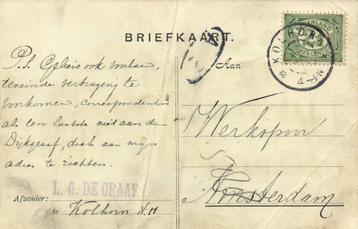 BRIEFKAART.
Aan
P.S. Gelieve ook voortaan,
teneinde vertraging te
voorkomen, correspondentie
als ten laatste niet aan den
Dijkgraaf, doch aan mijn
adres te richten.
L. G. DE GRAAF
Afzender: te Kolhorn N.H
KOLHORN
Werkspoor
Amsterdam